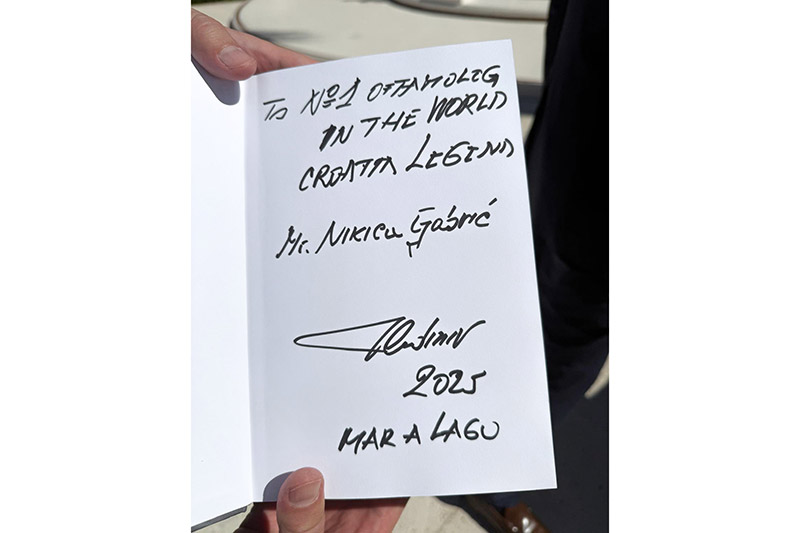 To №1 OFTAMOLEG
IN THE WORLD
CROATIA LEGEND
Mr. NIKICA Gabrić
2025
MAR A LAGO